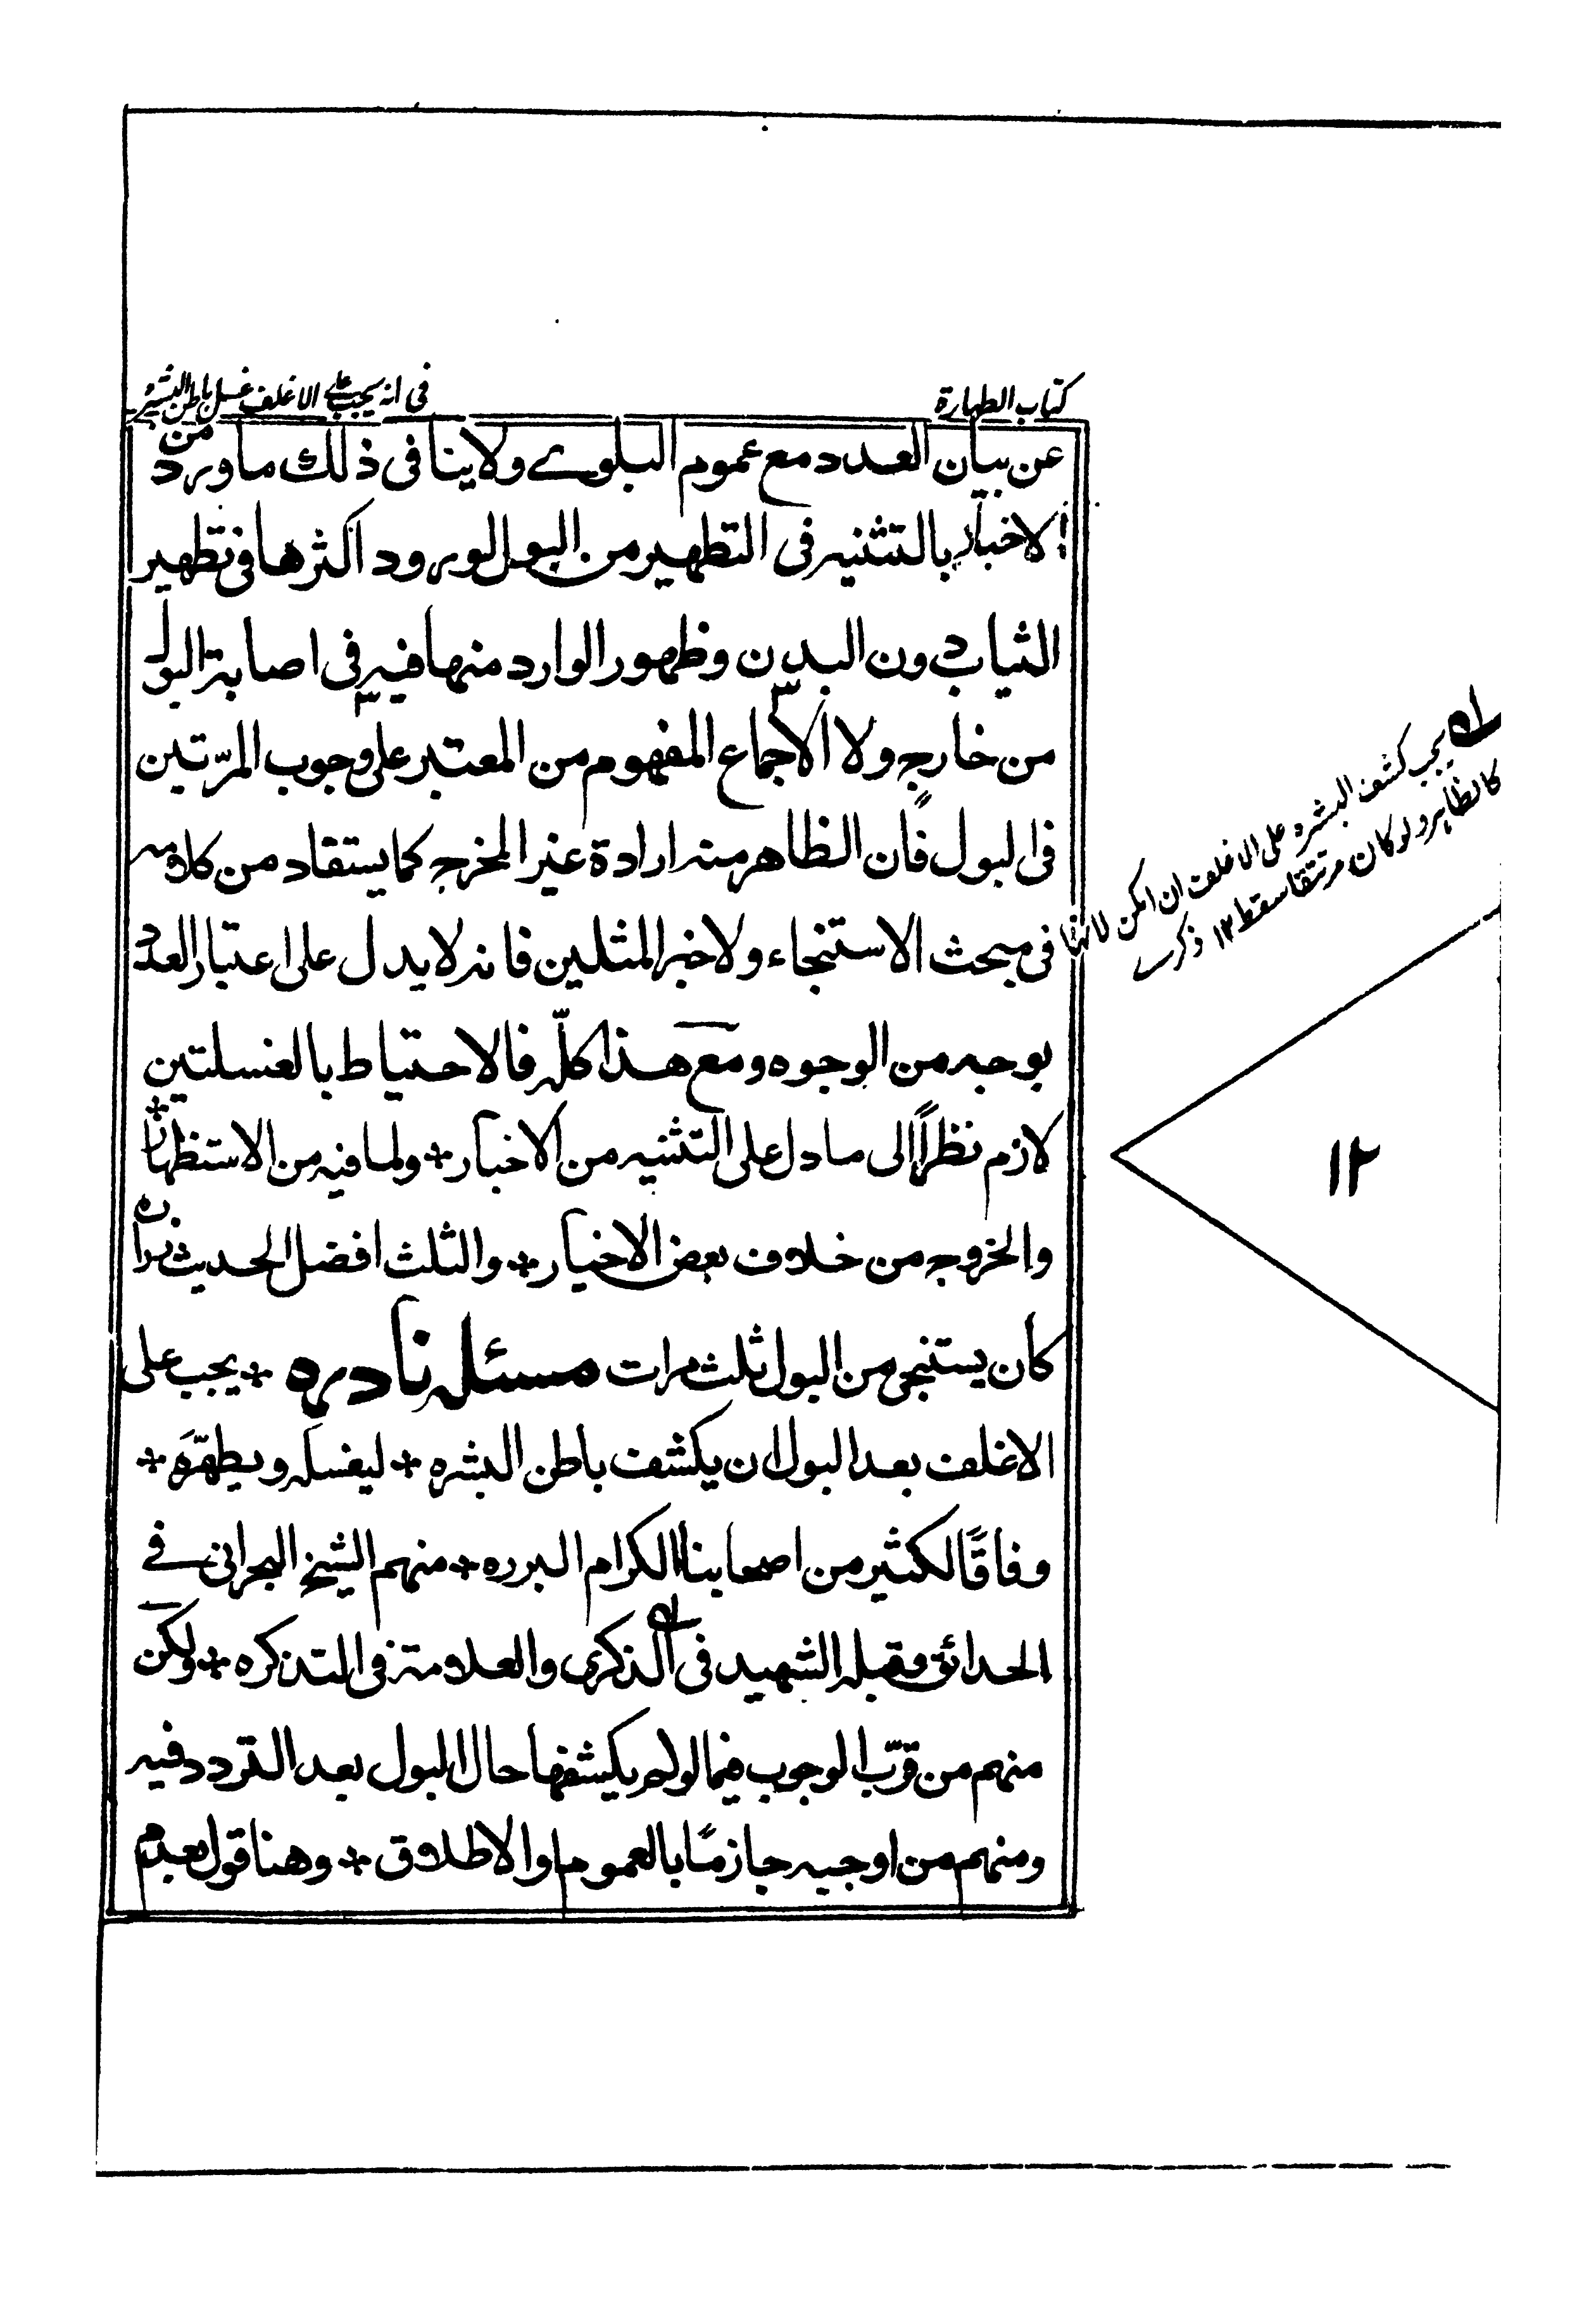 كتاب الطهارة
في انه يجب على الاغلف غسل باطن البشره
عن بيان العدد مع عموم البلوى ولا ينافى ذلك ما ورد من
الاخبار بالتثنيه فى التطهير من البول لورود اكثرها فى تطهير
الثياب دون البدن وظهور الوارد منها فيه فى اصابة البول
من خارج ولا الاجماع المفهوم من المعتبر على وجوب المرّتين
فى البول فان الظاهر منه ارادة غير المخرج كما يستفاد من كلامه
فى مبحث الاستنجاء ولا خبر المثلين فانه لا يدل على اعتبار العدد
بوجه من الوجوه ومع هذا كلّه فالاحتياط بالغسلتين
لازم نظراً الى ما دل على التثنيه من الاخبار * ولما فيه من الاستظهار *
والخروج من خلاف بعض الاخيار * والثلث افضل لحديث زرارة
كان يستنجى من البول ثلث مرات مسئله نادره * يجب على
الاغلف بعد البول ان يكشف باطن البشره * ليغسله ويطهّره *
وفاقًا لكثير من اصحابنا الكرام البرره * منهم الشيخ البحرانى فے
الحدائق وقبله الشهيد فى الذكرى والعلامة فى التذكره * ولكن
منهم من قرّب الوجوب فيما لو لم يكشفها حال البول بعد التردد فيه
ومنهم من اوجبه جازمًا بالعموم والاطلاق * وهنا قول بعدم
يجب كشف البشره على الاغلف ان امكن لانها
كالظاهر ولو كان مرتتقا سقط ١٢ ذكرى
١٢